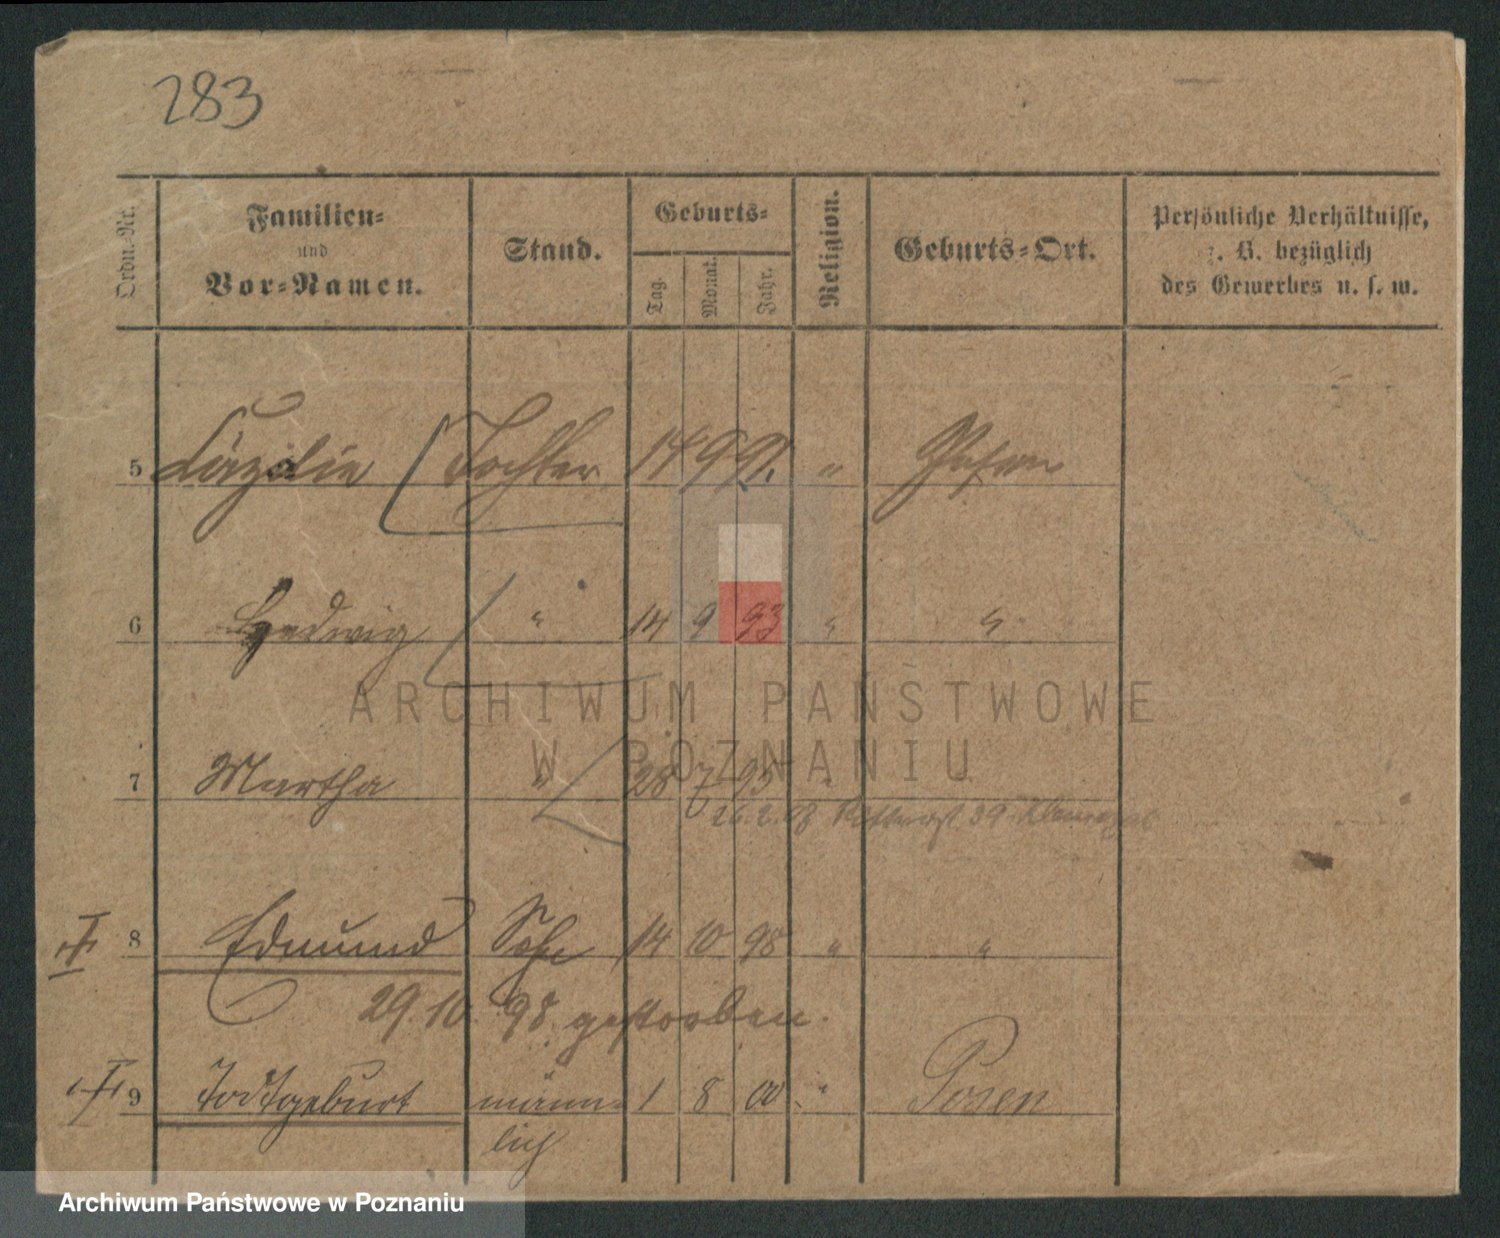 283
Ordn.-Nr.
Familien-
und
Vor-Namen.
Stand.
Geburts-
Tag.
Monat.
Jahr.
Religion.
Geburts-Ort.
Persönliche Verhältnisse,
z. B. bezüglich
des Gewerbes u. s. w.
5 Cäzilie Tochter 14 9 91. "
6 Hedwig " 14 9 93 " "
ARCHIWUM PAŃSTWOWE
W POZNANIU
7 Martha " 28 7 95 "
26. 2. 98 39
8 Edmund Sohn 14 10 98 " "
29. 10. 98 gestorben.
9 Todtgeburt männ- 1 8 00. " Posen
lich
Archiwum Państwowe w Poznaniu